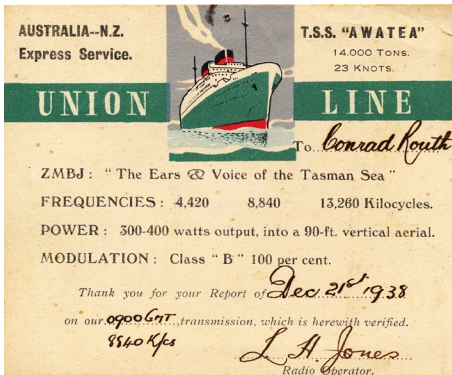 AUSTRALIA--N.Z.
Express Service.
T.S.S. "AWATEA"
14,000 TONS.
23 KNOTS.
UNION LINE
To Conrad Routh
ZMBJ : "The Ears & Voice of the Tasman Sea"
FREQUENCIES : 4,420 8,840 13,260 Kilocycles.
POWER : 300-400 watts output, into a 90-ft. vertical aerial.
MODULATION : Class "B" 100 per cent.
Thank you for your Report of Dec 21st 1938
on our 0900 GMT transmission, which is herewith verified.
8840 K/cs
L. H. Jones
Radio Operator.